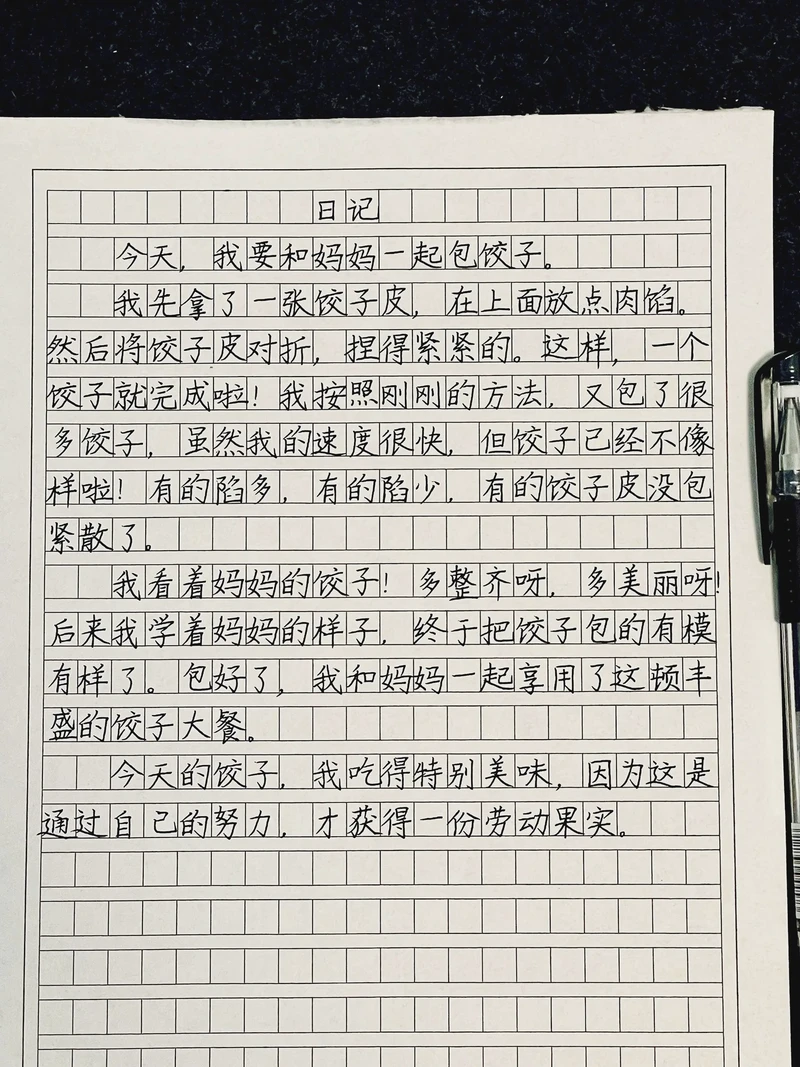 日记
今天，我要和妈妈一起包饺子。
我先拿了一张饺子皮，在上面放点肉馅。
然后将饺子皮对折，捏得紧紧的。这样，一个
饺子就完成啦！我按照刚刚的方法，又包了很
多饺子，虽然我的速度很快，但饺子已经不像
样啦！有的陷多，有的陷少，有的饺子皮没包
紧散了。
我看着妈妈的饺子！多整齐呀，多美丽呀！
后来我学着妈妈的样子，终于把饺子包的有模
有样了。包好了，我和妈妈一起享用了这顿丰
盛的饺子大餐。
今天的饺子，我吃得特别美味，因为这是
通过自己的努力，才获得一份劳动果实。